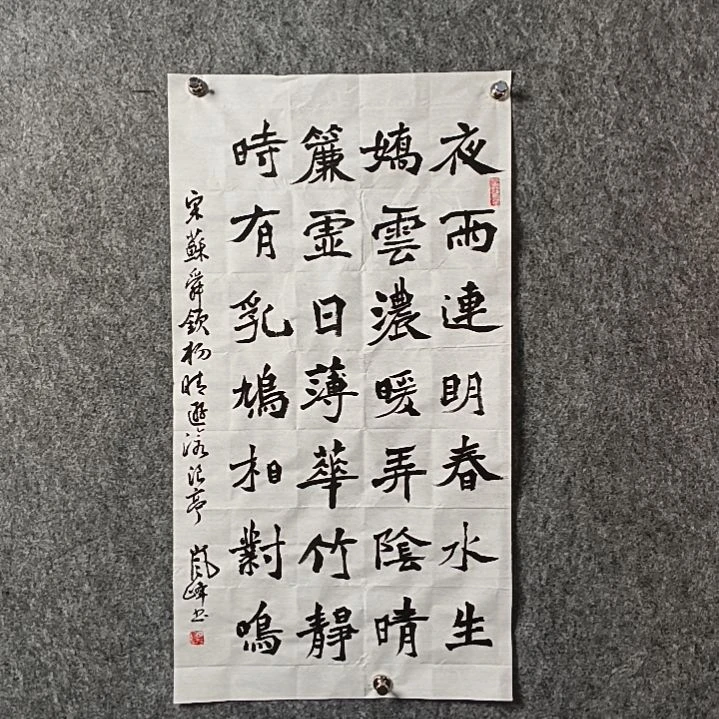 夜雨連明春水生
嬌雲濃暖弄陰晴
簾虛日薄華竹靜
時有乳鳩相對鳴
宋蘇舜欽初晴遊滄浪亭 嵐峰书